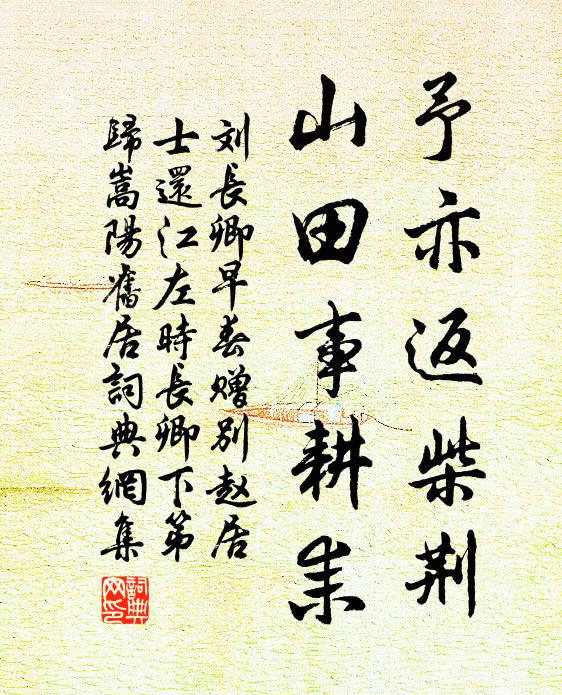 予亦返柴荆
山田事耕耒
刘長卿早春赠别赵居
士還江左時長卿下第
歸嵩陽舊居詞典網集
詞典网印